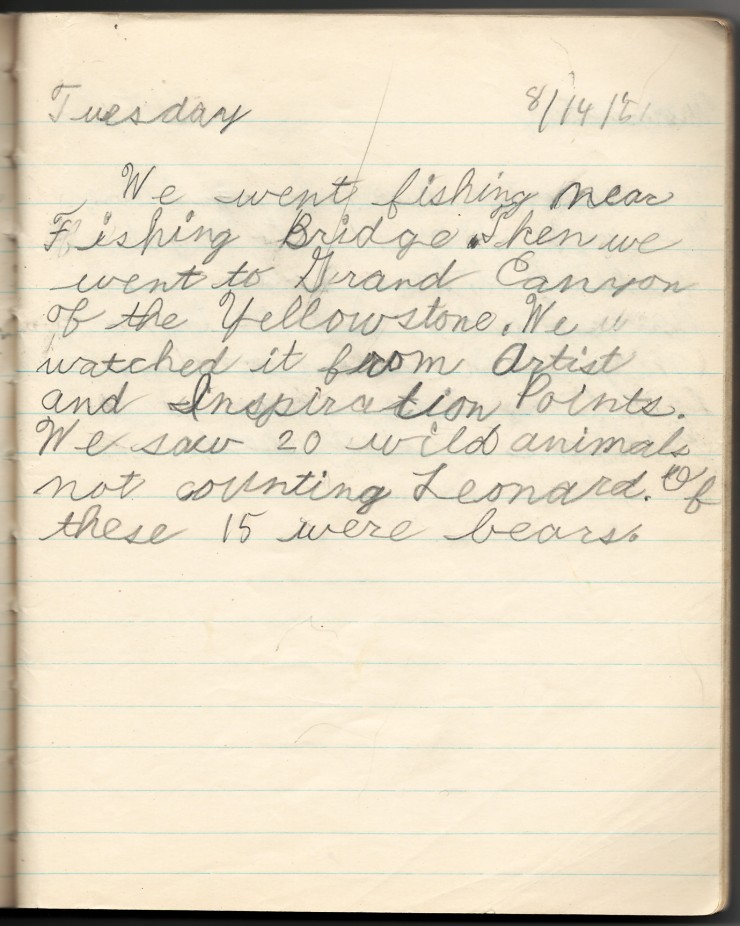 Tuesday 8/14/51
We went fishing near
Fishing Bridge. Then we
went to Grand Canyon
of the Yellowstone. We
watched it from Artist
and Inspiration Points.
We saw 20 wild animals
not counting Leonard. Of
these 15 were bears.